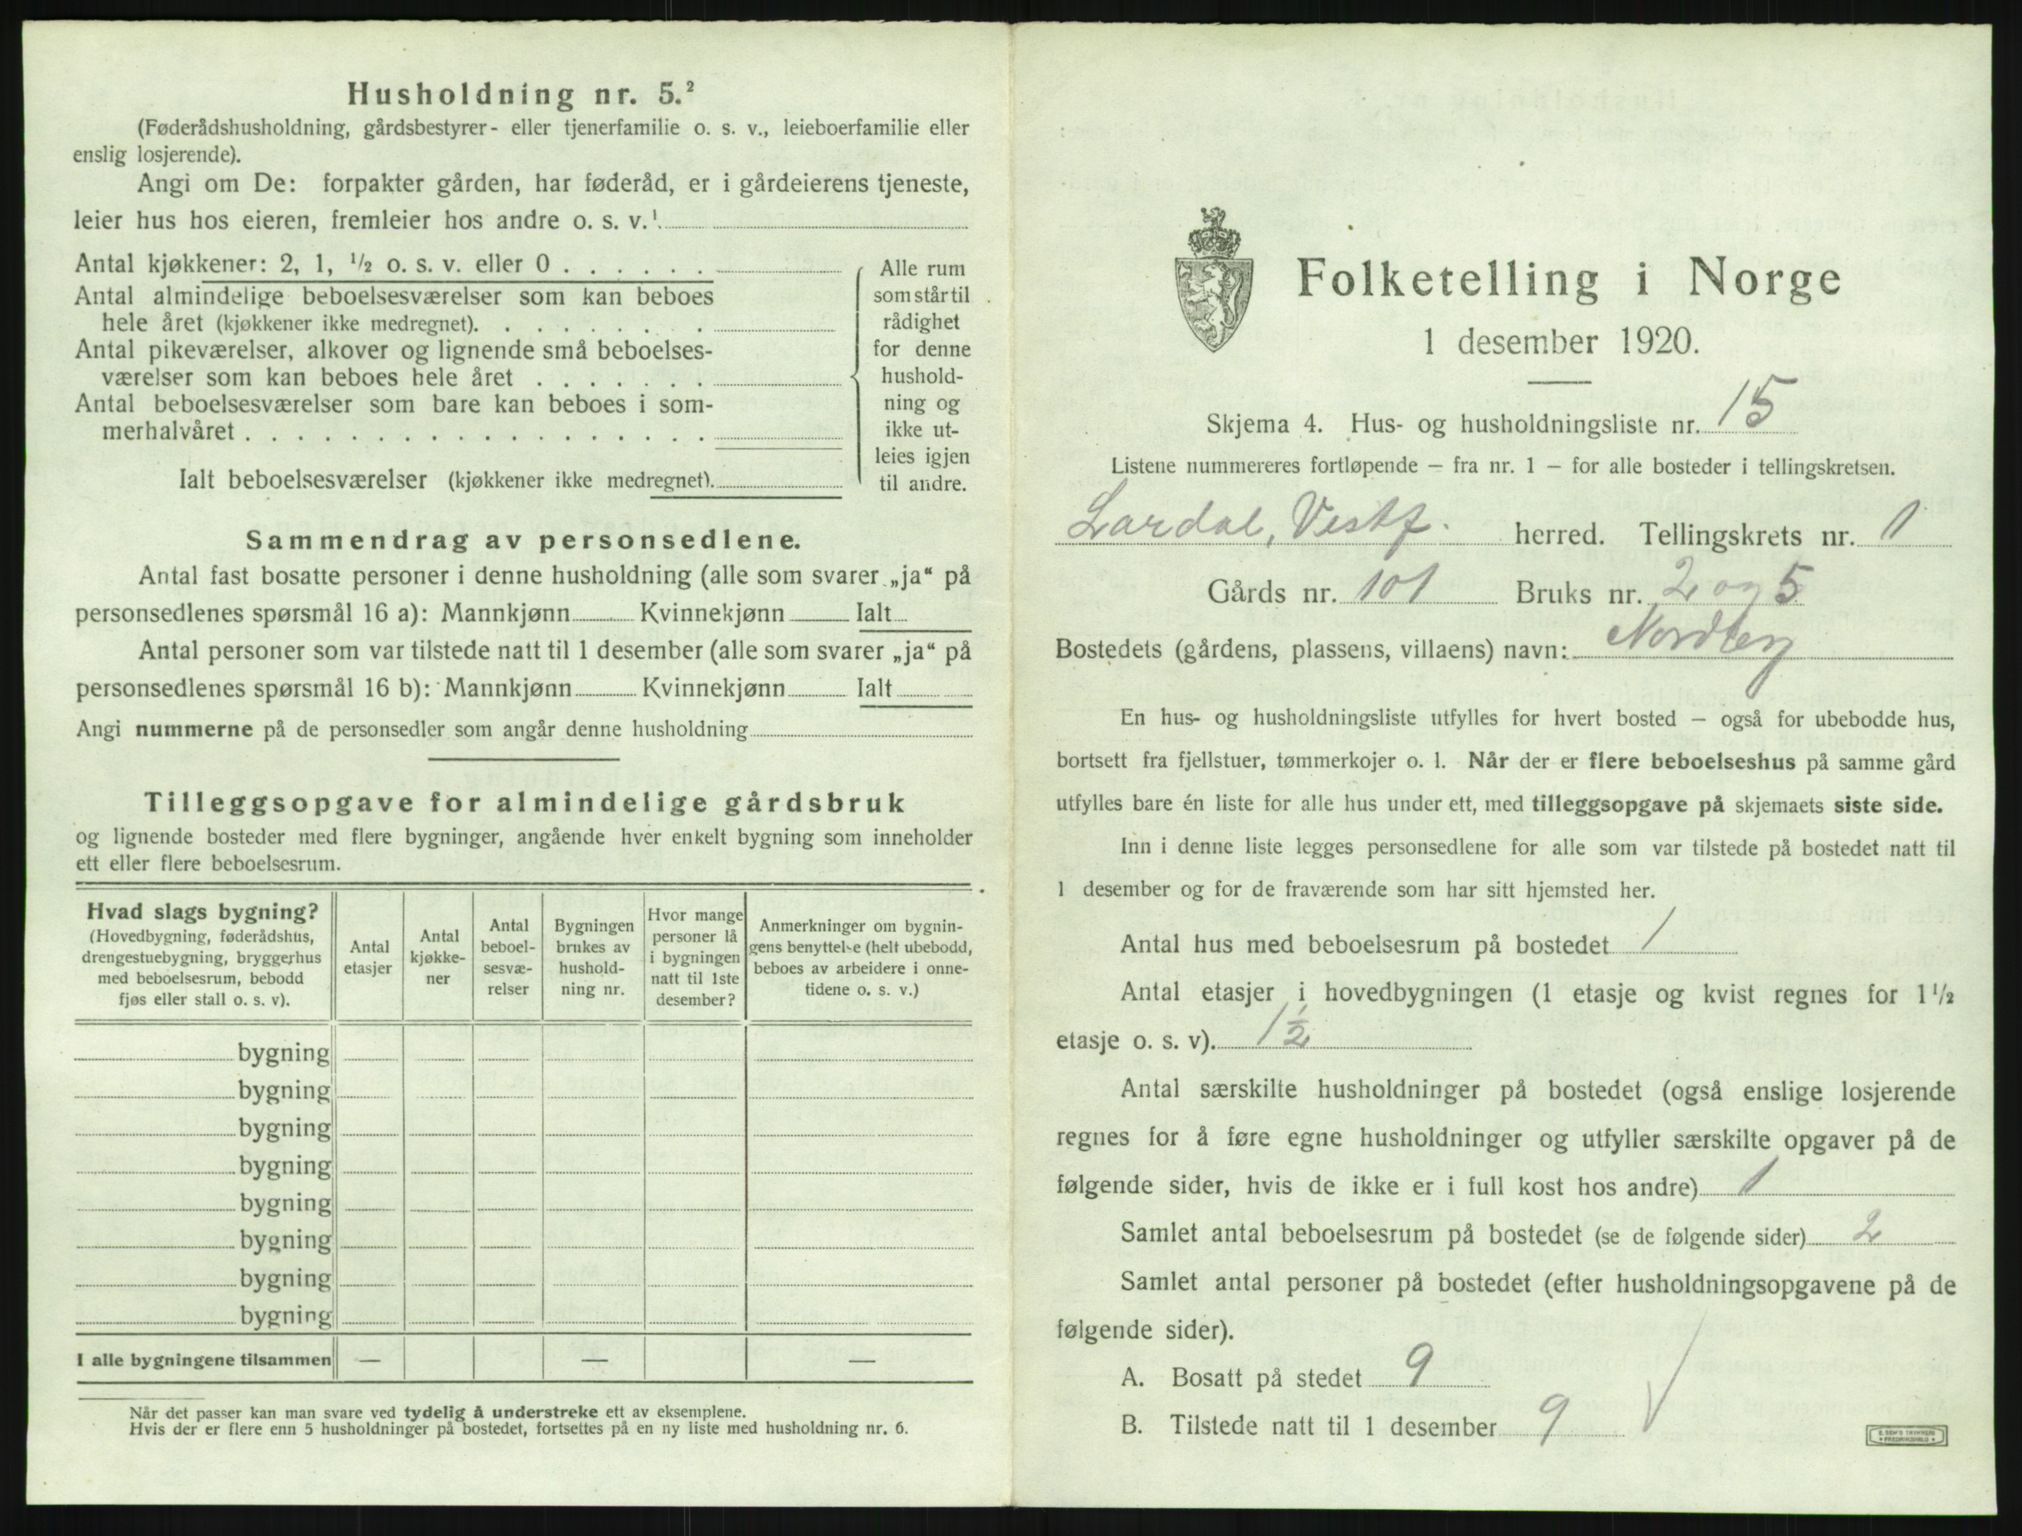 Husholdning nr. 5.²
(Føderådshusholdning, gårdsbestyrer- eller tjenerfamilie o. s. v., leieboerfamilie eller
enslig losjerende).
Angi om De: forpakter gården, har føderåd, er i gårdeierens tjeneste,
leier hus hos eieren, fremleier hos andre o. s. v.¹
Antal kjøkkener: 2, 1, ½ o. s. v. eller 0 . . . . . .
Antal almindelige beboelsesværelser som kan beboes
hele året (kjøkkener ikke medregnet). . . . . . . . .
Antal pikeværelser, alkover og lignende små beboelses-
værelser som kan beboes hele året . . . . . . .
Antal beboelsesværelser som bare kan beboes i som-
merhalvåret . . . . . . . . . . . . . . . . . .
Ialt beboelsesværelser (kjøkkener ikke medregnet).
Alle rum
som står til
rådighet
for denne
hushold-
ning og
ikke ut-
leies igjen
til andre.
Sammendrag av personsedlene.
Antal fast bosatte personer i denne husholdning (alle som svarer „ja“ på
personsedlenes spørsmål 16 a): Mannkjønn Kvinnekjønn Ialt
Antal personer som var tilstede natt til 1 desember (alle som svarer „ja“ på
personsedlenes spørsmål 16 b): Mannkjønn Kvinnekjønn Ialt
Angi nummerne på de personsedler som angår denne husholdning
Tilleggsopgave for almindelige gårdsbruk
og lignende bosteder med flere bygninger, angående hver enkelt bygning som inneholder
ett eller flere beboelsesrum.
Hvad slags bygning?
(Hovedbygning, føderådshus,
drengestuebygning, bryggerhus
med beboelsesrum, bebodd
fjøs eller stall o. s. v).
Antal
etasjer
Antal
kjøkke-
ner
Antal
beboel-
sesvæ-
relser
Bygningen
brukes av
hushold-
ning nr.
Hvor mange
personer lå
i bygningen
natt til 1ste
desember?
Anmerkninger om bygnin-
gens benyttelse (helt ubebodd,
beboes av arbeidere i onne-
tidene o. s. v.)
bygning
bygning
bygning
bygning
bygning
bygning
bygning
bygning
I alle bygningene tilsammen — — —
Når det passer kan man svare ved tydelig å understreke ett av eksemplene.
Hvis der er flere enn 5 husholdninger på bostedet, fortsettes på en ny liste med husholdning nr. 6.
Folketelling i Norge
1 desember 1920.
Skjema 4. Hus- og husholdningsliste nr. 15
Listene nummereres fortløpende – fra nr. 1 – for alle bosteder i tellingskretsen.
Lardal, Vestf. herred. Tellingskrets nr. 1
Gårds nr. 101 Bruks nr. 2 og 5
Bostedets (gårdens, plassens, villaens) navn: Nordberg
En hus- og husholdningsliste utfylles for hvert bosted – også for ubebodde hus,
bortsett fra fjellstuer, tømmerkojer o. l. Når der er flere beboelseshus på samme gård
utfylles bare én liste for alle hus under ett, med tilleggsopgave på skjemaets siste side.
Inn i denne liste legges personsedlene for alle som var tilstede på bostedet natt til
1 desember og for de fraværende som har sitt hjemsted her.
Antal hus med beboelsesrum på bostedet 1
Antal etasjer i hovedbygningen (1 etasje og kvist regnes for 1½
etasje o. s. v). 1½
Antal særskilte husholdninger på bostedet (også enslige losjerende
regnes for å føre egne husholdninger og utfyller særskilte opgaver på de
følgende sider, hvis de ikke er i full kost hos andre) 1
Samlet antal beboelsesrum på bostedet (se de følgende sider) 2
Samlet antal personer på bostedet (efter husholdningsopgavene på de
følgende sider).
A. Bosatt på stedet 9
B. Tilstede natt til 1 desember 9